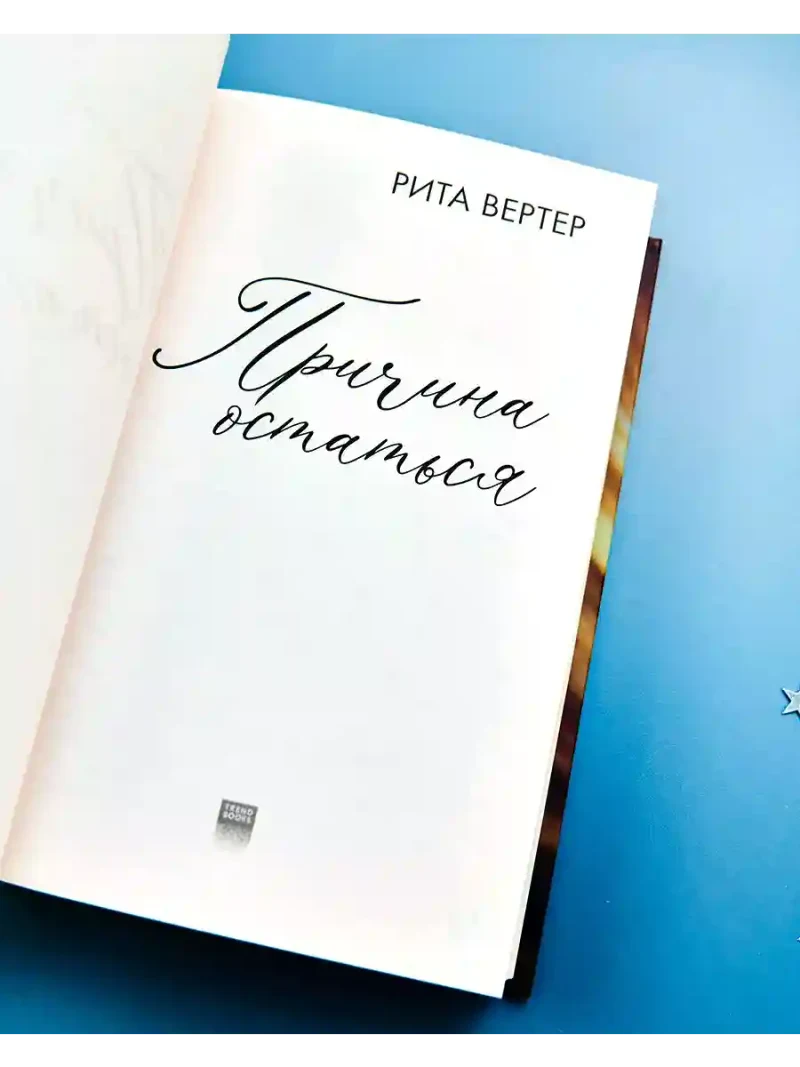 РИТА ВЕРТЕР
Причина
остаться
TREND
BOOKS